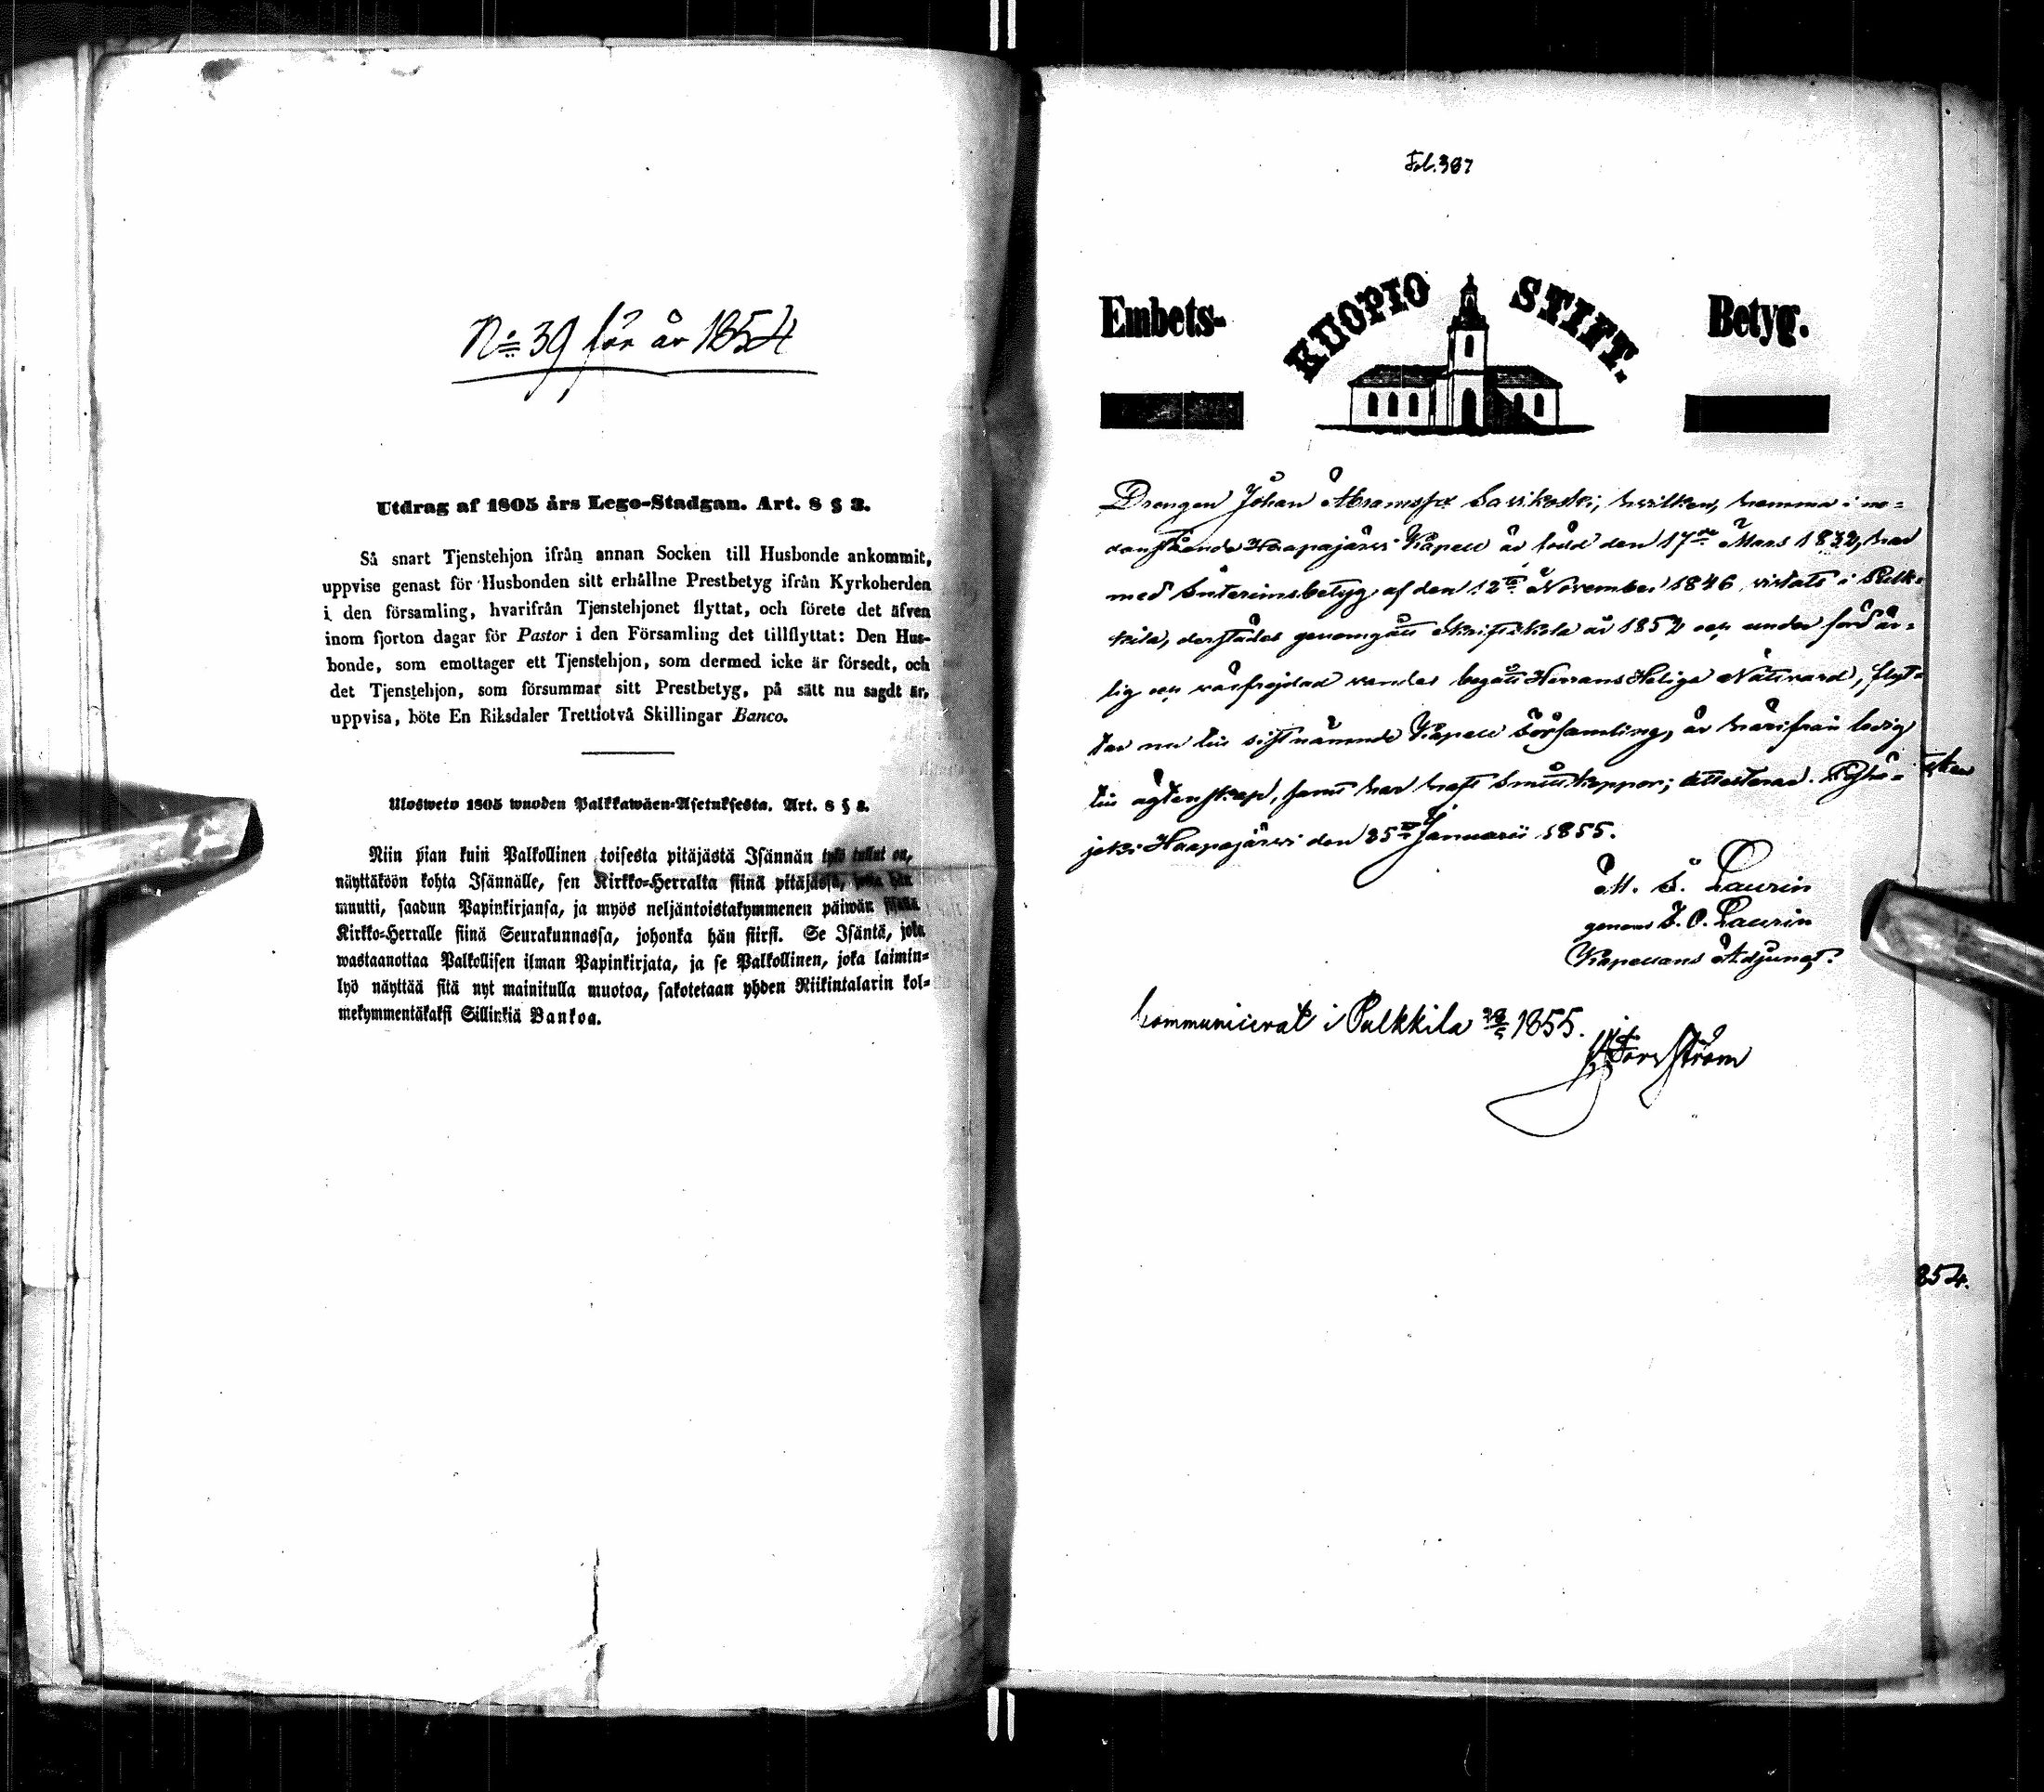 No 39 för år 1854
Utdrag af 1805 års Lego-Stadgan. Art. 8 § 3.
Så snart Tjenstehjon ifrån annan Socken till Husbonde ankommit,
uppvise genast för Husbonden sitt erhållne Prestbetyg ifrån Kyrkoherden
i den församling, hvarifrån Tjenstehjonet flyttat, och förete det äfven
inom fjorton dagar för Pastor i den Församling det tillflyttat: Den Hus-
bonde, som emottager ett Tjenstehjon, som dermed icke är försedt, och
det Tjenstehjon, som försummar sitt Prestbetyg, på sätt nu sagdt är,
uppvisa, böte En Riksdaler Trettiotvå Skillingar Banco.
Ulosweto 1805 wuoden Palkkawäen-Asetuksesta. Art. 8 § 3.
Niin pian kuin Palkollinen toisesta pitäjästä Isännän tykö tullut on,
näyttäköön kohta Isännälle, sen Kirkko-Herralta siinä pitäjässä, josta hän
muutti, saadun Papinkirjansa, ja myös neljäntoistakymmenen päiwän sisällä
Kirkko-Herralle siinä Seurakunnassa, johonka hän siirsi. Se Isäntä, joka
wastaanottaa Palkollisen ilman Papinkirjata, ja se Palkollinen, joka laimin-
lyö näyttää sitä nyt mainitulla muotoa, sakotetaan yhden Riikintalarin kol-
mekymmentäkaksi Sillinkiä Bankoa.
Fol. 387
Embets- KUOPIO STIFT. Betyg.
Drengen Johan Abramsson Savikoski, hvilken, hemma i ne-
danstående Haapajärvi Kapell är född den 17de Mars 1832, har
med Interimsbetyg af den 12te November 1846 vistats i Pulk-
kila, derstädes genomgått Skriftskola år 1852 och under 
lig och välfrejdad vandel begått Herrans Heliga Nattvard, flyt-
tar nu till sistnämnde Kapell Församling, är härifrån ledig
till ägtenskap, samt har haft Smittkoppor; attesterad. Pyhä-
joki Haapajärvi den 25te Januarii 1855.
M. L. Laurin
genom I. O. Laurin
Kapellans Adjunct.
Communicerat i Pulkkila 1855.
Forsström
854.